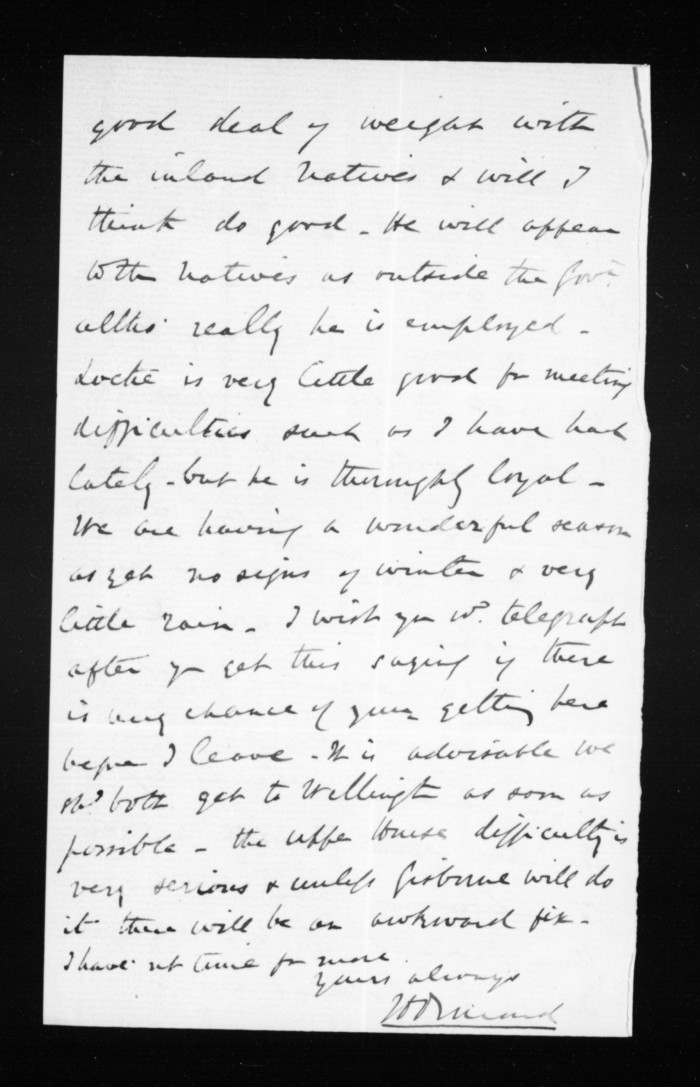 good deal of weight with
the inland Natives & will I
think do good - He will appear
to the Natives as outside the Govt.
altho' really he is employed -
Locke is very little good for meeting
difficulties such as I have had
lately - but he is thoroughly loyal -
We are having a wonderful season
as yet no signs of winter & very
little rain - I wish you wd. telegraph
after you get this saying if there
is any chance of your getting here
before I leave - It is advisable we
shd. both get to Wellington as soon as
possible - the upper House difficulty is
very serious & unless Gisborne will do
it there will be an awkward fix -
I have not time for more.
Yours always
JD Ormond